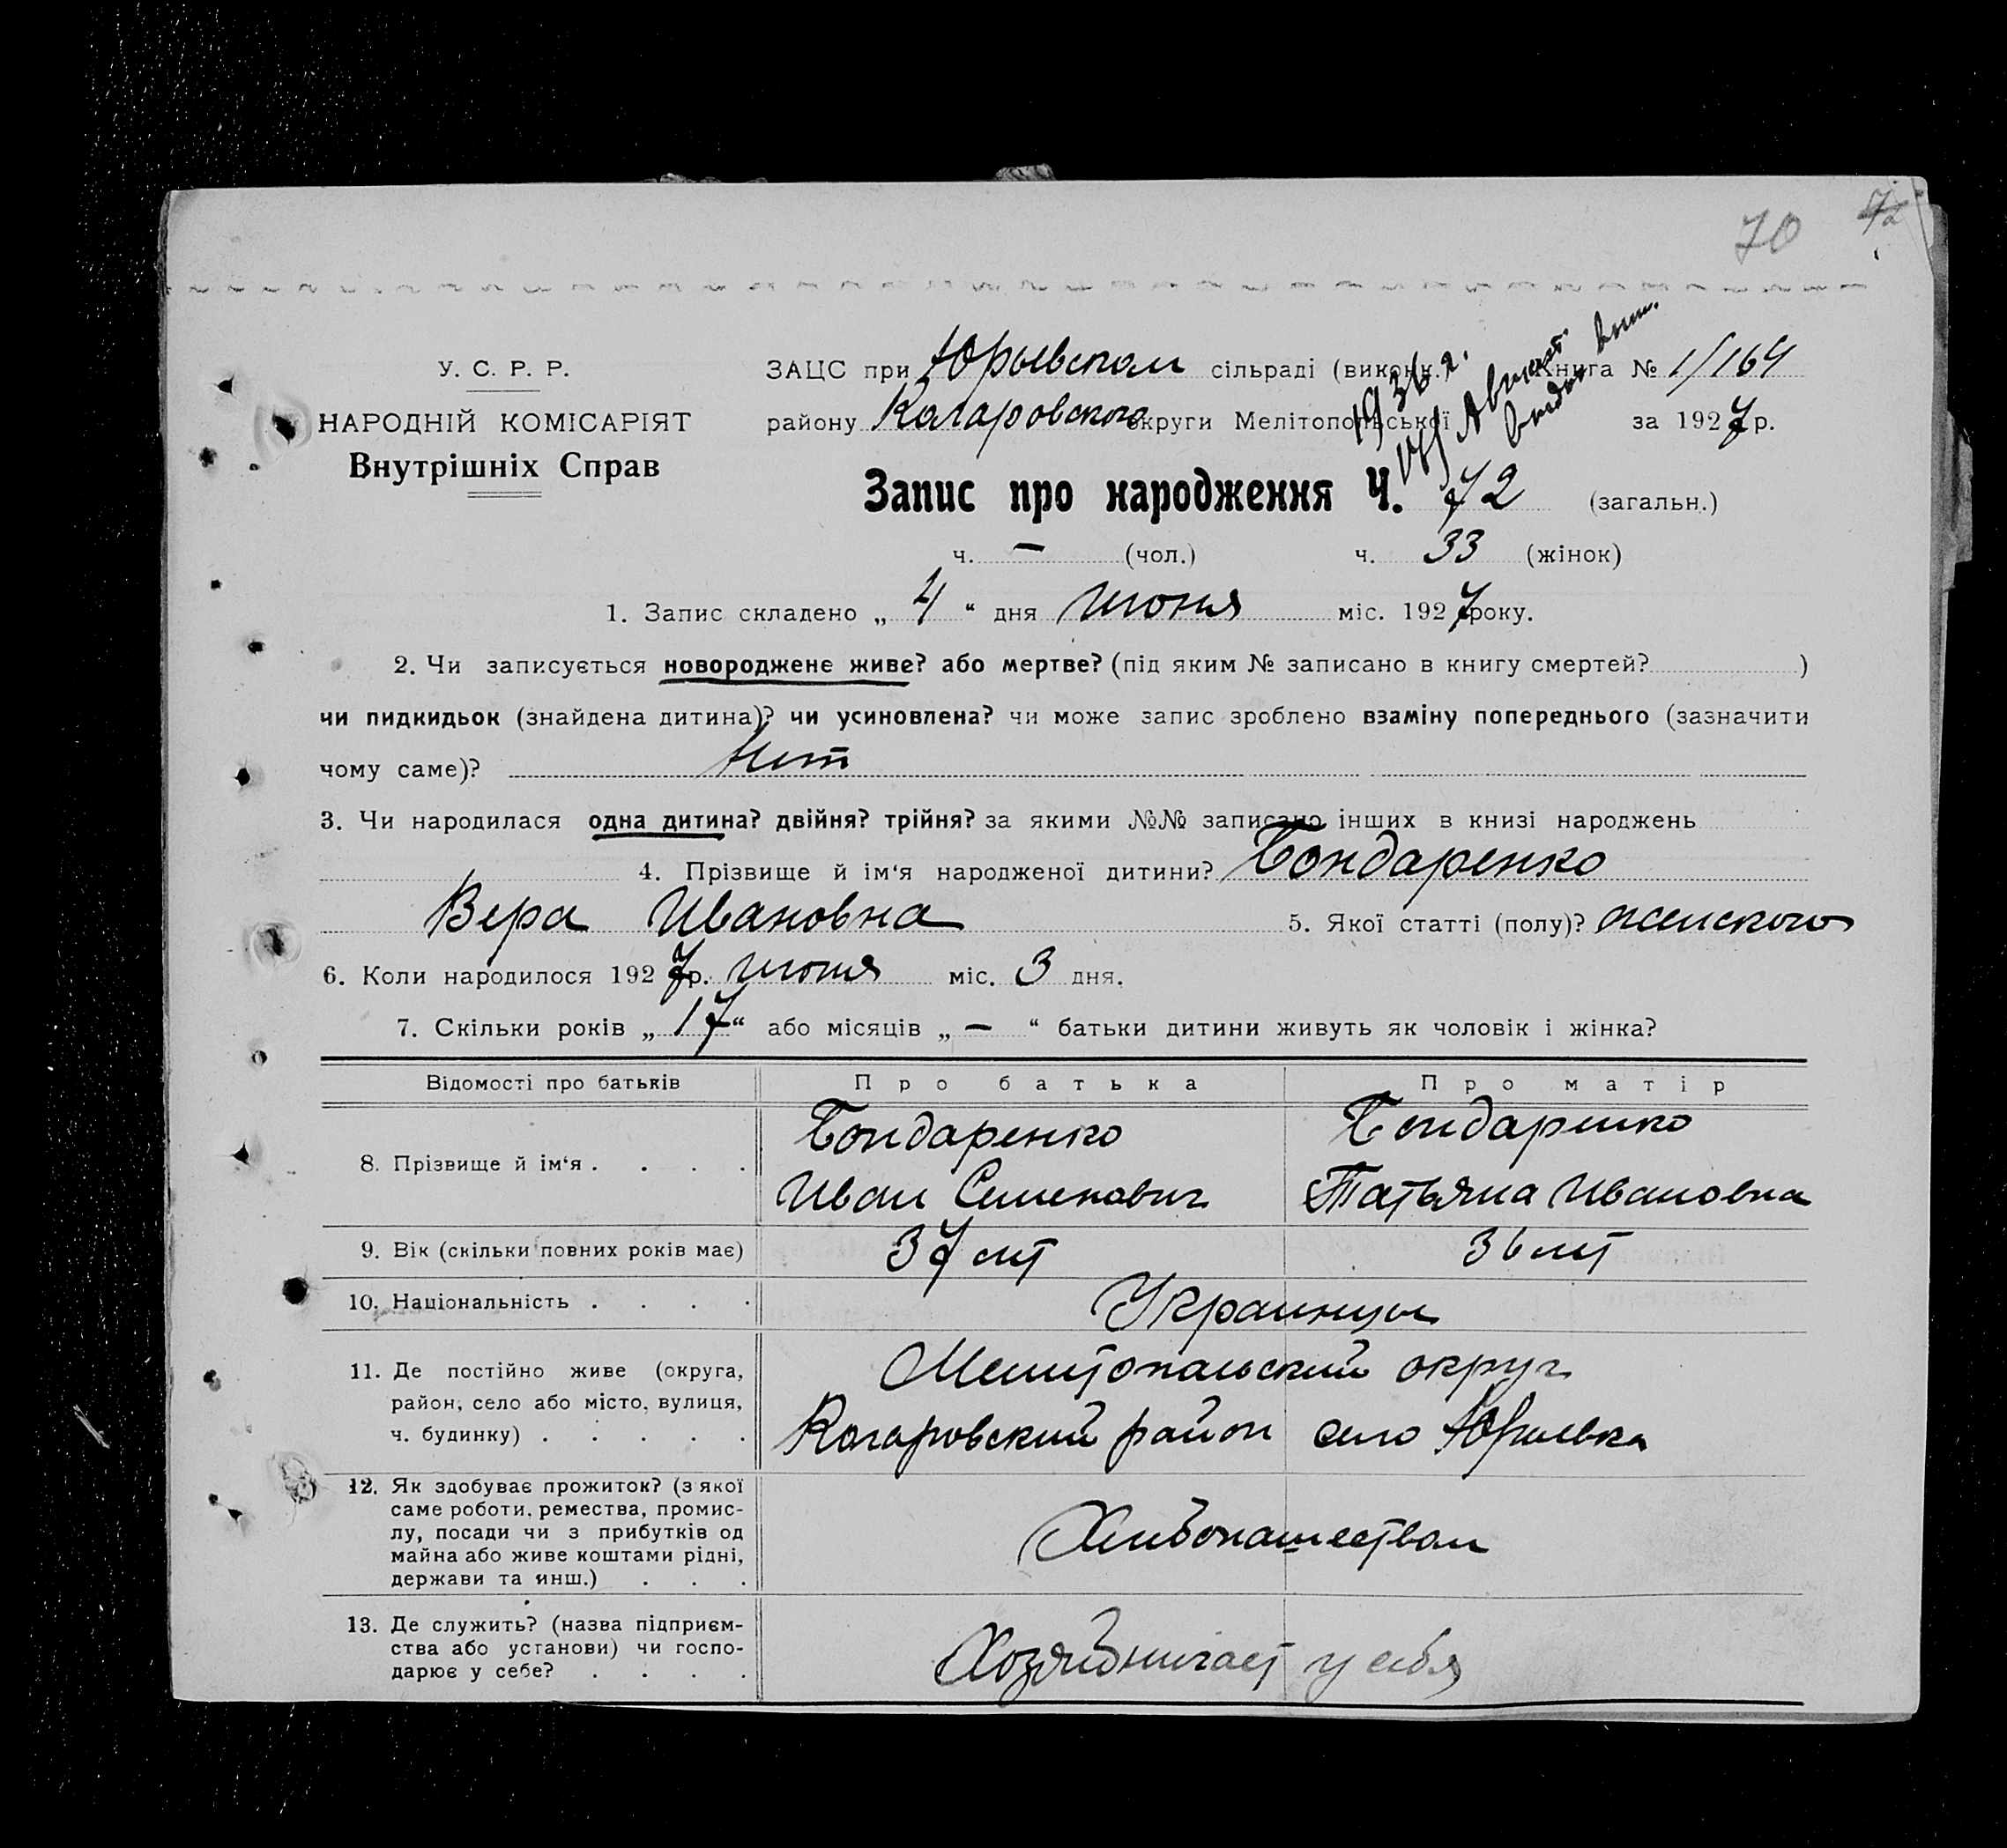 70 72
У. С. Р. Р.
НАРОДНІЙ КОМІСАРІЯТ
Внутрішніх Справ
ЗАЦС при Юрьевском сільраді (виконк.) Книга № 1/164
району Коларовского округи Мелітопольської за 1927 р.
1936 г.
Август
Запис про народження Ч. 72 (загальн.)
ч. — (чол.) ч. 33 (жінок)
1. Запис складено „ 4 “ дня июня міс. 1927 року.
2. Чи записується новороджене живе? або мертве? (під яким № записано в книгу смертей? )
чи пидкидьок (знайдена дитина)? чи усиновлена? чи може запис зроблено взаміну попереднього (зазначити
чому саме)? Нет
3. Чи народилася одна дитина? двійня? трійня? за якими №№ записано інших в книзі народжень
4. Прізвище й ім‘я народженої дитини? Бондаренко
Вера Ивановна 5. Якої статті (полу)? женского
6. Коли народилося 1927 р. июня міс. 3 дня.
7. Скільки років „ 17 “ або місяців „ — “ батьки дитини живуть як чоловік і жінка?
Відомості про батьків Про батька Про матір
8. Прізвище й ім‘я . . . . Бондаренко Бондаренко
Иван Семенович Татьяна Ивановна
9. Вік (скільки повних років має) 37 лет 36 лет
10. Національність . . . . Украинцы
11. Де постійно живе (округа, район, село або місто, вулиця, ч. будинку) . . . . . Мелитопольский округ
Коларовский район село Юрьевка
12. Як здобуває прожиток? (з якої
саме роботи, ремества, промис-
лу, посади чи з прибутків од
майна або живе коштами рідні,
держави та инш.) . . . Хлебопашеством
13. Де служить? (назва підприєм-
ства або установи) чи госпо-
дарює у себе? . . . . Хозяйничает у себя